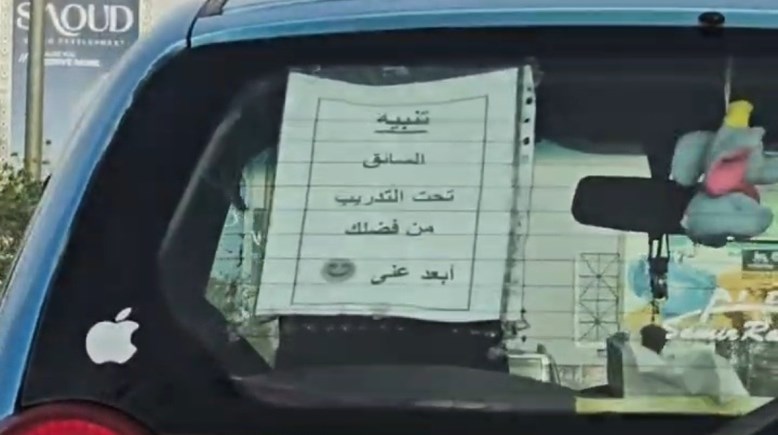 SAOUD
DEVELOPMENT
تنبيه
السائق
تحت التدريب
من فضلك
أبعد عنى